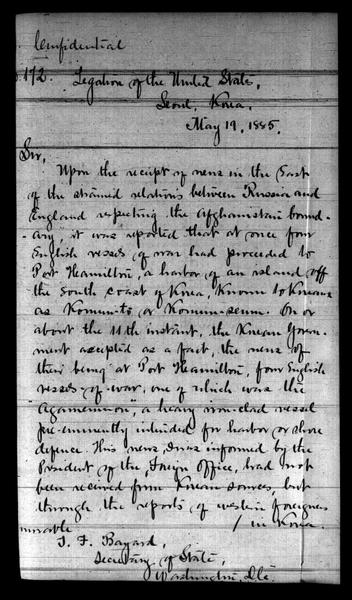 Confidential
172. Legation of the United States,
Seoul, Korea,
May 19, 1885.
Sir,
Upon the receipt of news in the East
of the strained relations between Russia and
England respecting the Afghanistan bound-
ary, it was reported that at once four
English vessels of war had proceeded to
Port Hamilton, a harbor of an island off
the South coast of Korea, known to Koreans
as Komun-to or Komun-seum. On or
about the 11th instant, the Korean Govern-
ment accepted as a fact, the news of
their being at Port Hamilton, four English
vessels-of-war, one of which was the
"Agamemnon", a heavy iron-clad vessel
pre-eminently intended for harbor or shore
defence. This news, I was informed by the
President of the Foreign Office, had not
been received from Korean sources, but
through the reports of western foreigners
/ in Korea.
T. F. Bayard,
Secretary of State,
Washington, D.C.